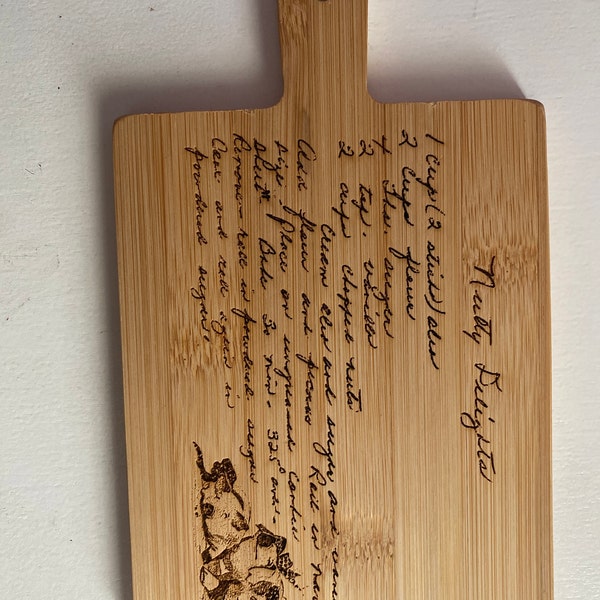 Nutty Delights
1 cup (2 sticks) oleo
2 cups flour
4 Tbs. sugar
2 tsp. vanilla
2 cups chopped nuts
Cream oleo and sugar and
Add flour and pecans Roll in
size. Place on ungreased cookie
sheet. Bake 30 min. 325° oven.
Remove - roll in powdered sugar
Cool and roll again in
powdered sugar.